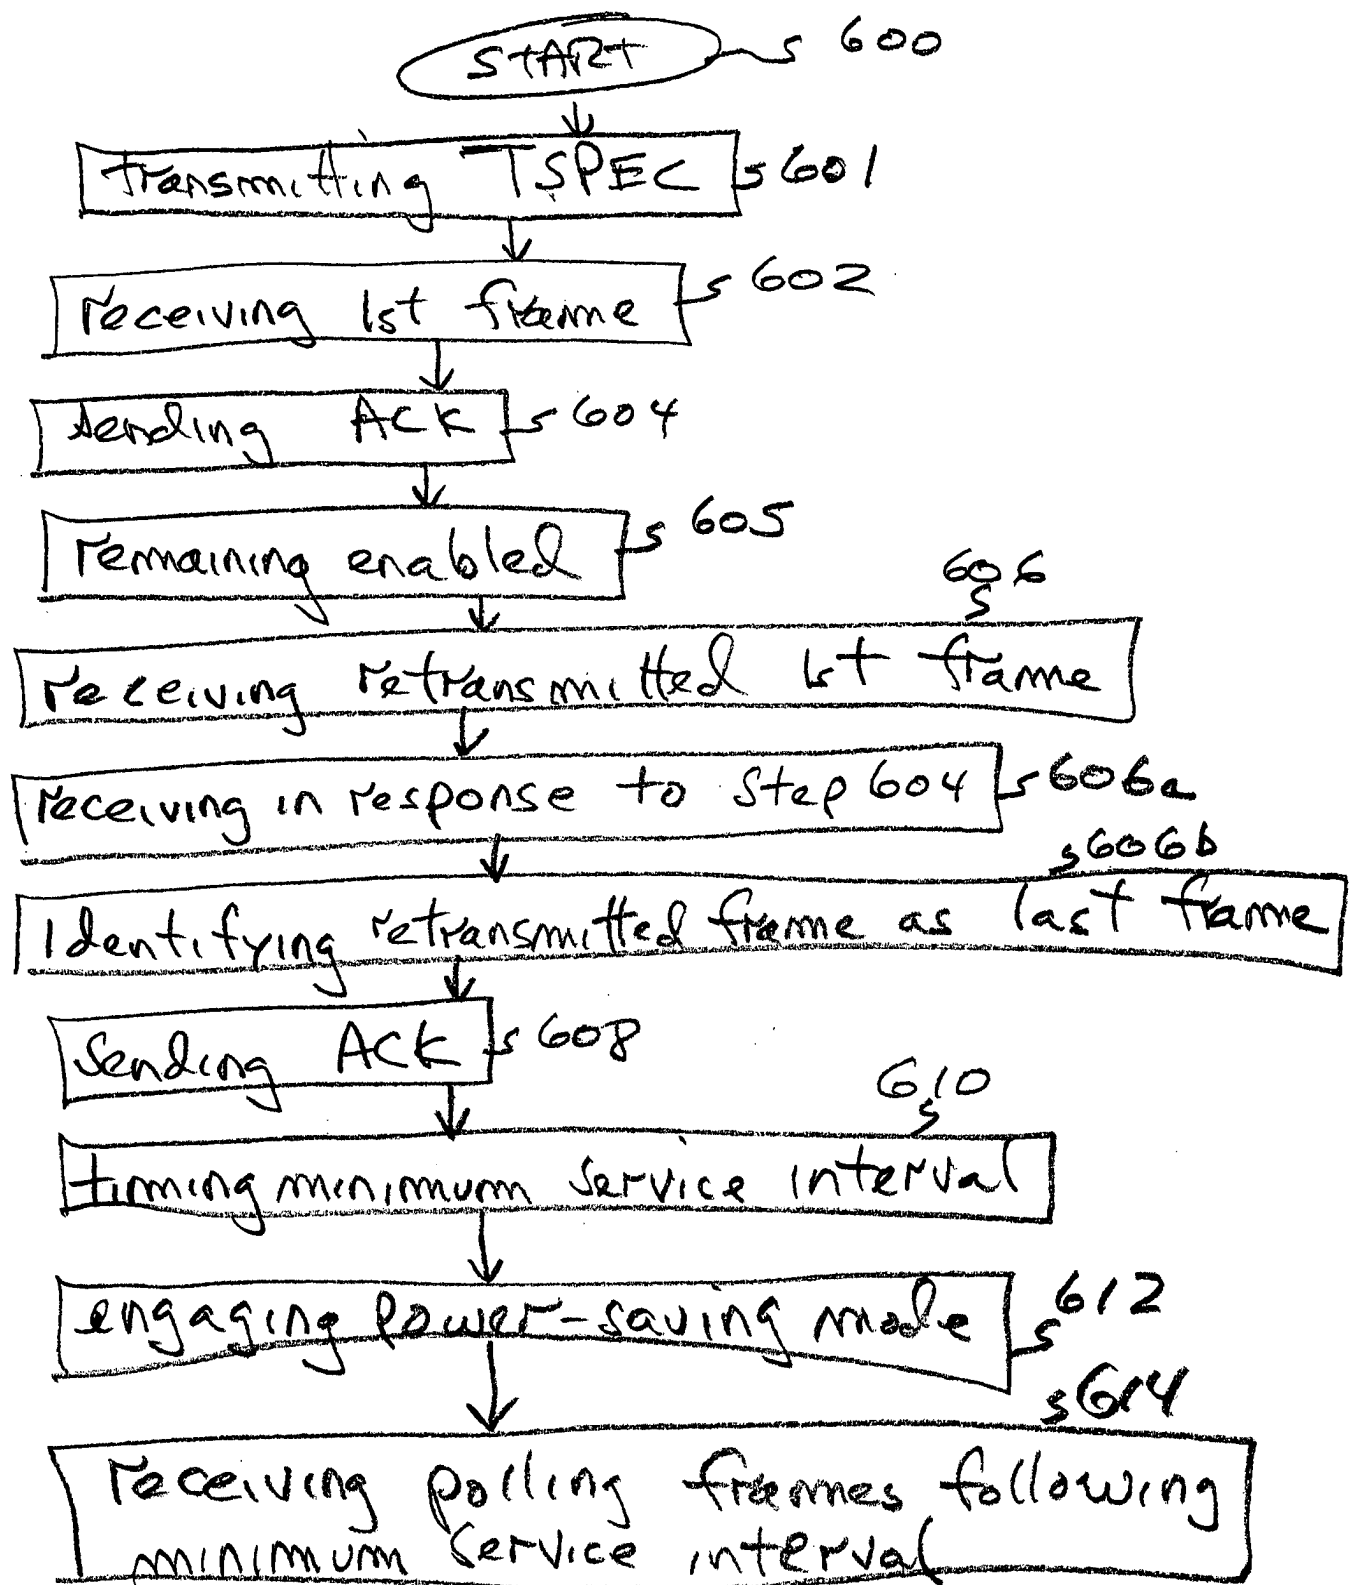 START 600
transmitting TSPEC 601
receiving 1st frame 602
sending ACK 604
remaining enabled 605
606
receiving retransmitted 1st frame
receiving in response to Step 604 606a
606b
Identifying retransmitted frame as last frame
Sending ACK 608
610
timing minimum service interval
engaging power-saving mode 612
614
receiving polling frames following
minimum service interval